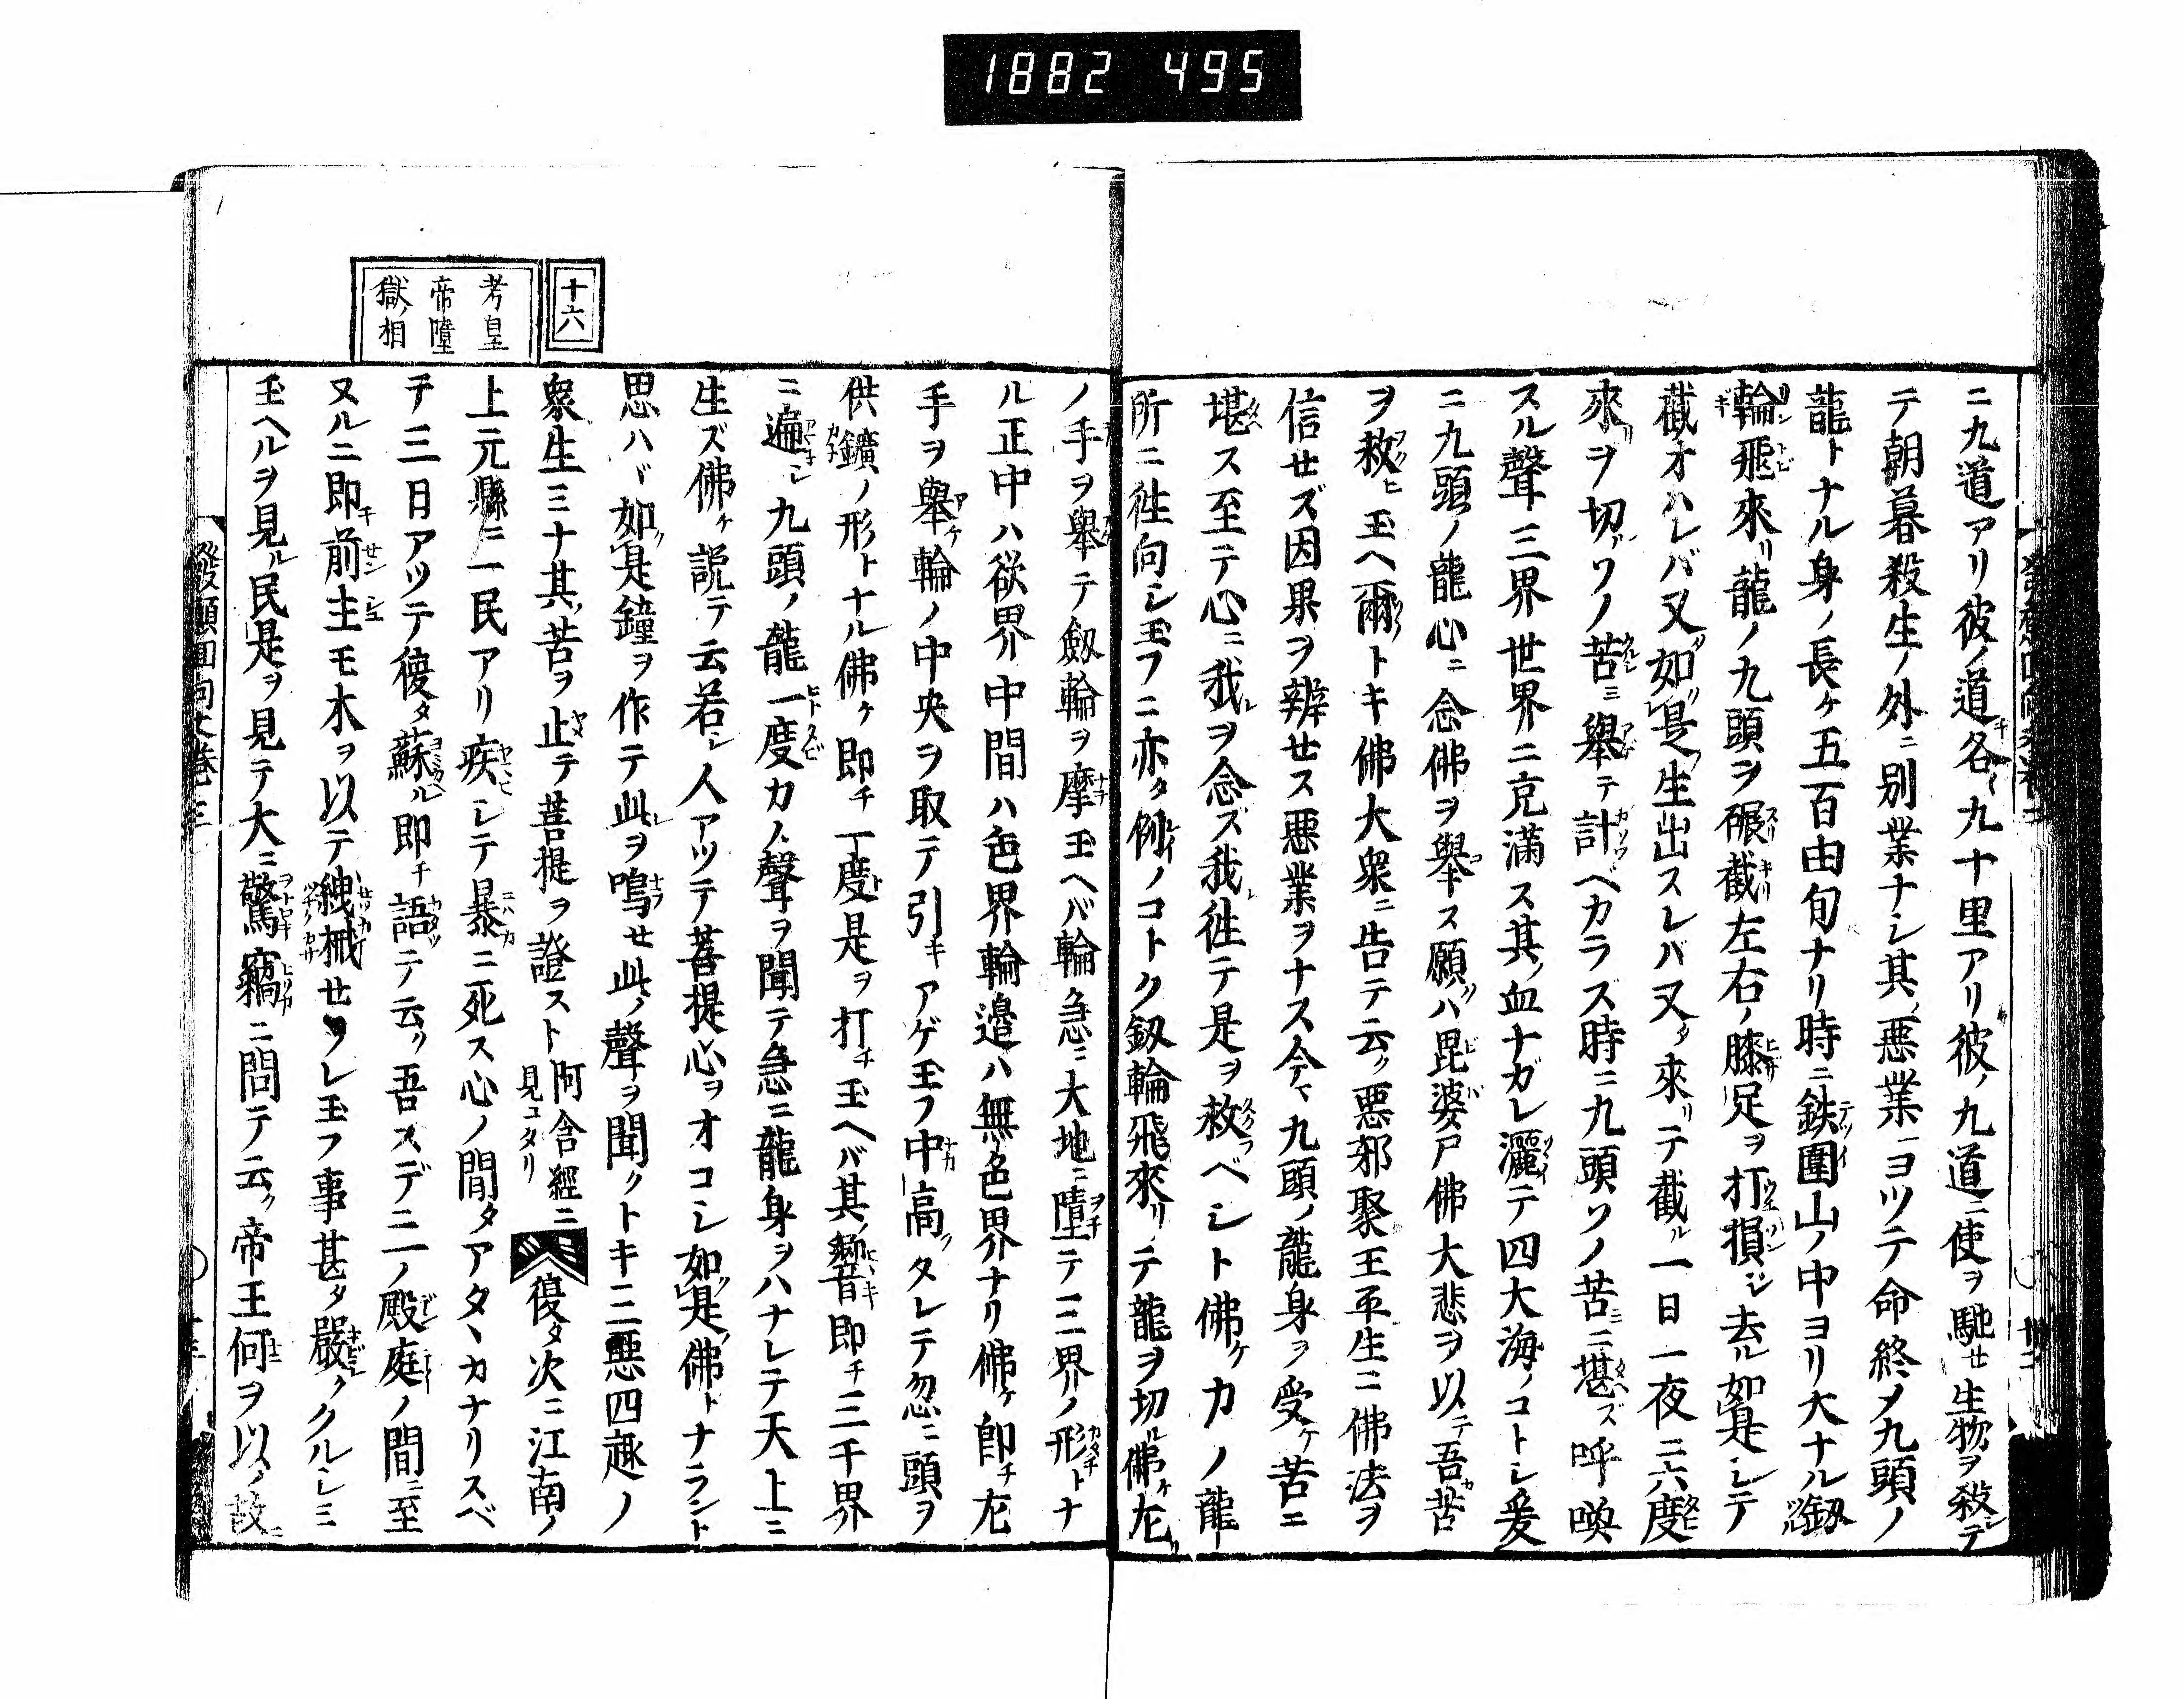 1882 495
ニ九道アリ彼ノ道各〻九十里アリ彼ノ九道ニ使ヲ馳セ生物ヲ殺シテ
テ朝暮殺生ノ外ニ別業ナシ其ノ悪業ニヨツテ命終メ九頭ノ
龍トナル身ノ長ケ五百由旬ナリ時ニ鉄圍山ノ中ヨリ大ナル釼
輪飛來リ龍ノ九頭ヲ碾截左右ノ膝足ヲ打損ジ去ル如是シテ
截オハレバ又如是生出スレバ又タ來リテ截ル一日一夜ニ六度
來ヲ切ソノ苦ミ舉テ計ベカラズ時ニ九頭ソノ苦ミニ堪ズ呼喚
スル聲三界世界ニ充満ス其ノ血ナガレ灑テ四大海ノコトシ爰
ニ九頭ノ龍心ニ念佛ヲ舉ス願ハ毘婆尸佛大悲ヲ以テ吾苦
ヲ救ヒ玉ヘ爾トキ佛大衆ニ告テ云ク悪邪聚王平生ニ佛法ヲ
信セズ因果ヲ辨セス悪業ヲナス今マ九頭ノ龍身ヲ受ケ苦ニ
堪ス至テ心ニ我ヲ念ズ我レ徃テ是ヲ救ベシト佛ケカノ龍
所ニ徃向シ玉フニ亦タ例ノコトク釼輪飛來リテ龍ヲ切ル佛ケ左
ノ手ヲ舉テ釼輪ヲ摩玉ヘバ輪急ニ大地ニ墮テ三界ノ形トナ
ル正中ハ欲界中間ハ色界輪邉ハ無色界ナリ佛ケ即チ左
手ヲ舉ケ輪ノ中央ヲ取テ引キアゲ玉フ中高クタレテ忽ニ頭ヲ
供鑛ノ形トナル佛ケ即チ一度是ヲ打チ玉ヘバ其ノ響即チ三千界
ニ遍シ九頭ノ龍一度カノ聲ヲ聞テ急ニ龍身ヲハナレテ天上ニ
生ズ佛ケ説テ云若シ人アツテ菩提心ヲオコシ如是佛トナラント
思ハヾ如是鐘ヲ作テ此ヲ鳴セ此ノ聲ヲ聞クトキ三悪四趣ノ
衆生ミナ其ノ苦ヲ止テ菩提ヲ證スト阿含經ニ見ユタリ復タ次ニ江南ノ
十六
考皇
帝墮
獄ノ相
上元縣ニ一民アリ疾シテ暴ニ死ス心ノ間タアタヽカナリスベ
テ三日アツテ復タ蘇ル即チ語テ云ク吾スデニ一ノ殿庭ノ間ニ至
又ルニ即前主モ木ヲ以テ絏械セラレ玉フ事甚タ嚴クルシミ
玉ヘルヲ見ル民是ヲ見テ大ニ驚竊ニ問テ云ク帝王何ヲ以ノ故ニ
發願回向文卷三